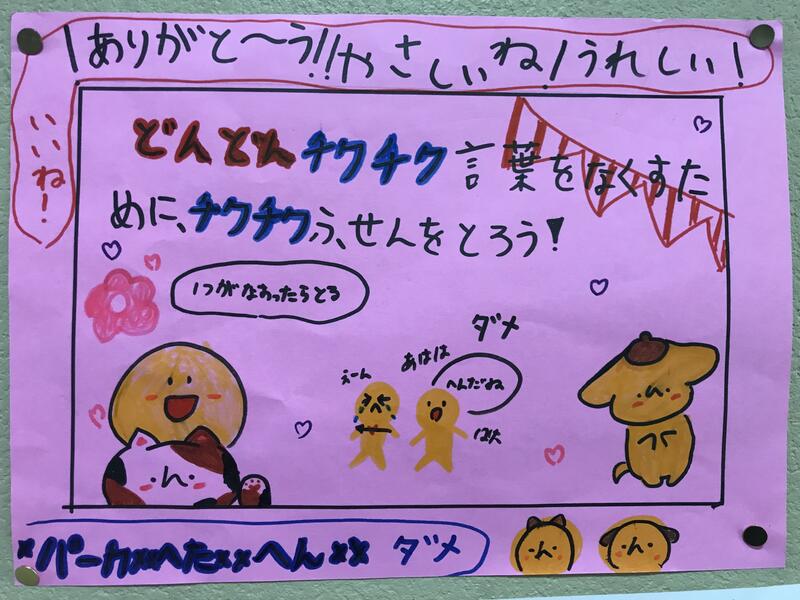 ！ありがと～う!!やさしいね！うれしい！
いいね！
どんどんチクチク言葉をなくすた
めに、チクチクふせんをとろう！
1つがなおったらとる
ダメ
えーん
あはは
へんだね
ばか
×バーカ××へた××へん×× ダメ